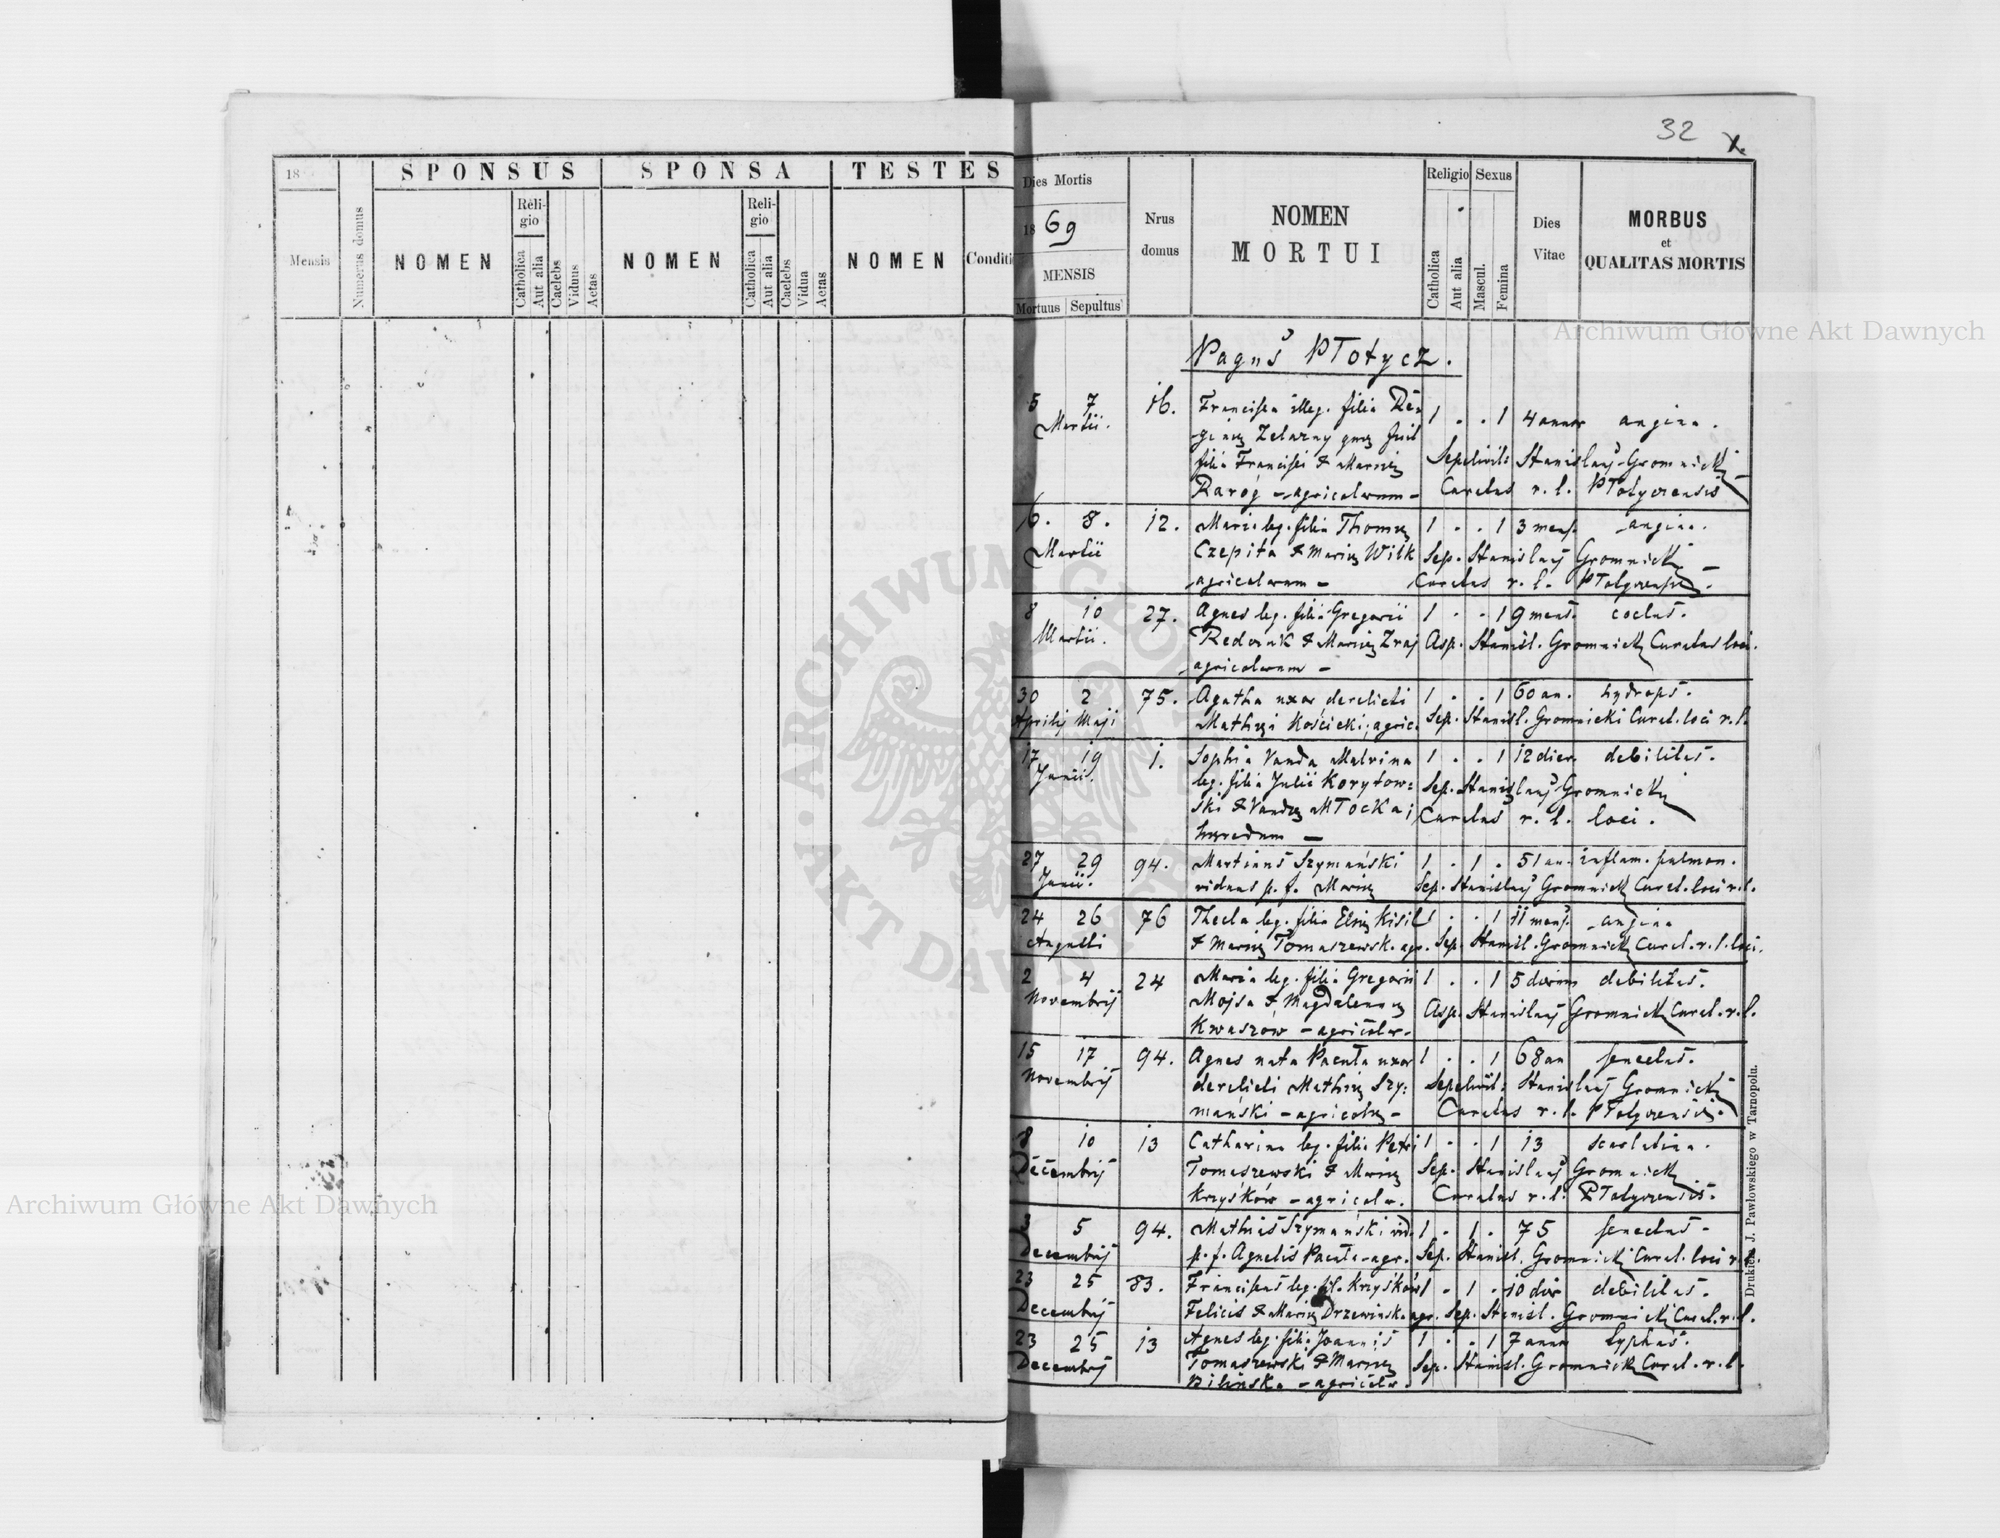 32
18
SPONSUS
SPONSA
TESTES
Mensis
Numerus domus
NOMEN
Reli-
gio
Catholica
Aut alia
Caelebs
Viduus
Aetas
NOMEN
Reli-
gio
Catholica
Aut alia
Caelebs
Vidua
Aetas
NOMEN
Conditi
Dies Mortis
1869
MENSIS
Mortuus
Sepultus
Nrus
domus
NOMEN
MORTUI
Religio
Catholica
Aut alia
Sexus
Mascul.
Femina
Dies
Vitae
MORBUS
et
QUALITAS MORTIS
Pagus Płotycz.
5 7 16. Francisca illeg. filia Re- 1 . . 1 4 annor angina.
Martii. ginæ Żelazny quæ fuit
filia Francisci & Mariæ Sepelivit: Stanislaus Gromnicki
Raróg - agricolarum - Curatus r. l. Płotycensis
6. 8. 12. Maria leg. filia Thomæ 1 . . 1 3 mens. angina.
Martii Czepita & Mariæ Wilk Sep. Stanislaus Gromnicki
agricolarum - Curatus r. l. Płotycensis.
8 10 27. Agnes leg. filia Gregorii 1 . . 1 9 mens. coctus.
Martii. Redosnik & Mariæ Zraj Asp. Stanisl. Gromnicki Curatus loci.
agricolarum -
30 2 75. Agatha uxor derelicti 1 . . 1 60 an. hydrops.
Aprilis Maji Mathæi Kościcki, agric. Sep. Stanisl. Gromnicki Curat. loci r. l.
17 19 1. Sophia Vanda Malvina 1 . . 1 12 dier. debilitas.
Junii. leg. filia Julii Korytow- Sep. Stanislaus Gromnicki
ski & Vandæ Młocka; Curatus r. l. loci.
hæredum -
27 29 94. Martinus Szymański 1 . 1 . 51 an. inflam. pulmon.
Junii. viduus p. f. Mariæ Sep. Stanislaus Gromnicki Curat. loci r. l.
24 26 76 Thecla leg. filia Eliæ Kisil 1 . . 1 11 mens. angina
Augusti & Mariæ Tomaszewsk. agr. Sep. Stanisl. Gromnicki Curat. r. l. loci.
2 4 24 Maria leg. filia Gregorii 1 . . 1 5 dierum debilitas.
Novembris Mojsa & Magdalenæ Asp. Stanislaus Gromnicki Curat. r. l.
Kwaszów - agricolar.
15 17 94. Agnes nata Pacuła uxor 1 . . 1 68 an senectus.
Novembris derelicti Mathiæ Szy- Sepelivit: Stanislaus Gromnicki
mański - agricolæ - Curatus r. l. Płotycensis.
8 10 13 Catharina leg. filia Petri 1 . . 1 13 scarlatina.
Decembris Tomaszewski & Mariæ Sep. Stanislaus Gromnicki
Krzyśków - agricolar. Curatus r. l. Płotycensis.
3 5 94. Mathias Szymański vid. 1 . 1 . 75 senectus.
Decembris p. f. Agnetis Pacuła - agr. Sep. Stanisl. Gromnicki Curat. loci r. l.
23 25 83. Franciscus leg. fil. Krzyśków 1 . 1 . 10 dier debilitas.
Decembris Felicis & Mariæ Drzewińska agr. Sep. Stanisl. Gromnicki Curat. r. l.
23 25 13 Agnes leg. filia Joannis 1 . . 1 7 annor typhus.
Decembris Tomaszewski & Mariæ Sep. Stanisl. Gromnicki Curat. r. l.
Bilińska - agricolar.
Drukiem J. Pawłowskiego w Tarnopolu.
Archiwum Główne Akt Dawnych
Archiwum Główne Akt Dawnych
ARCHIWUM GŁÓWNE AKT DAWNYCH